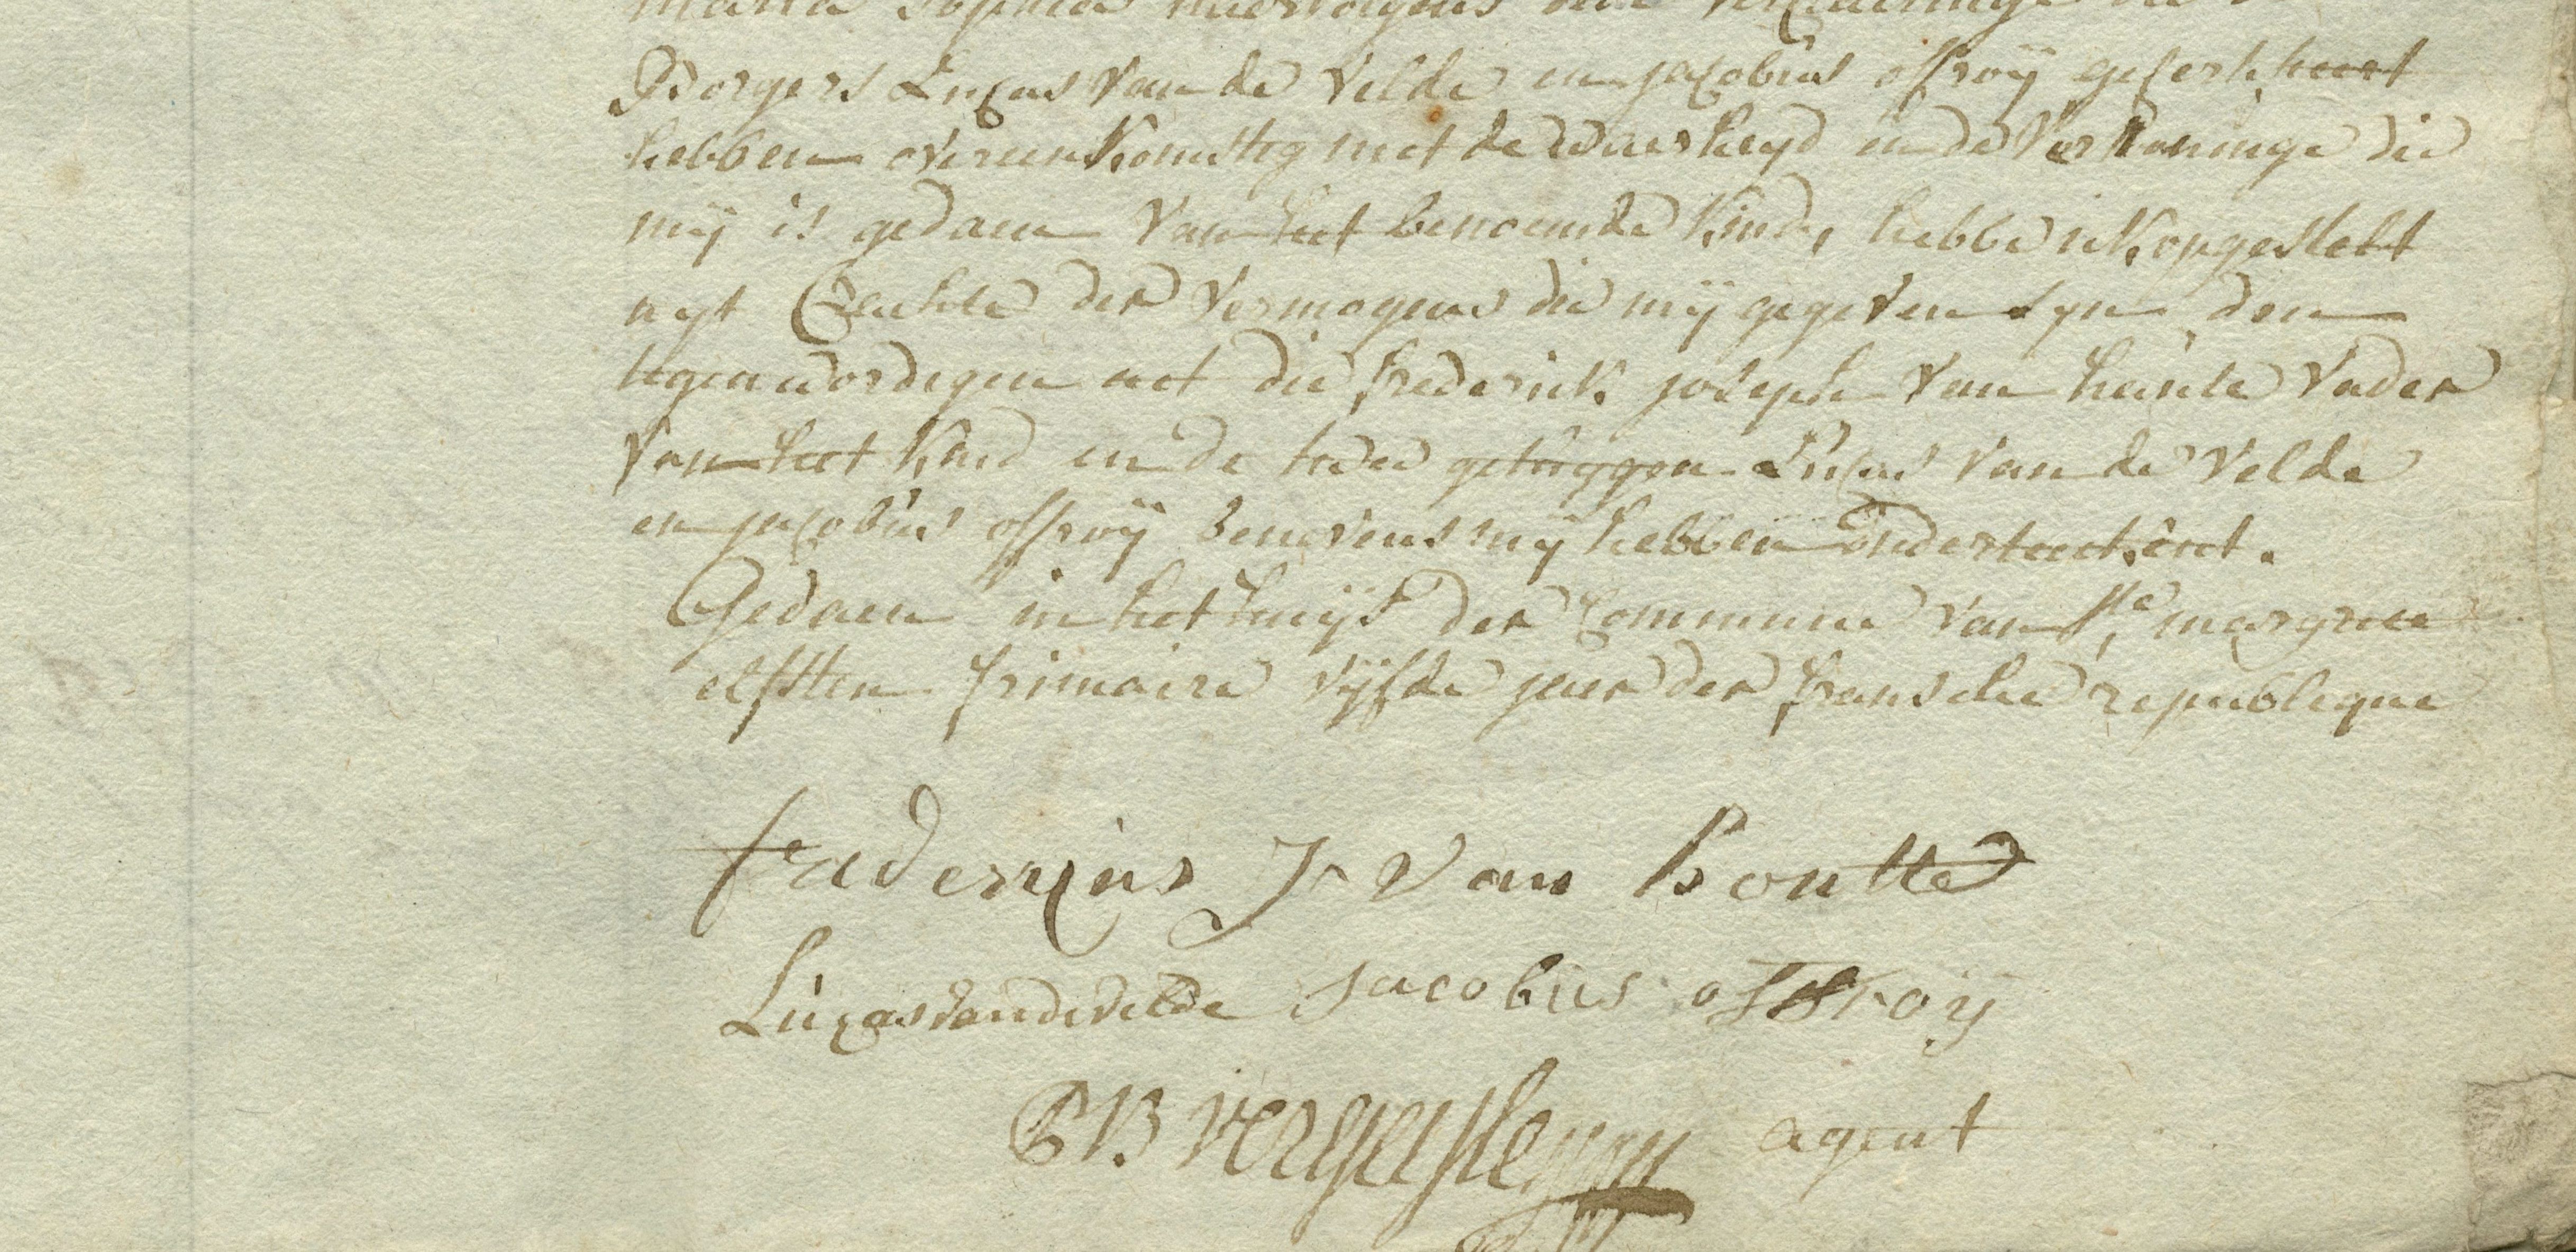 maria sophia
Borgers Lucas van de velde en jacobus offroij gesertheert
hebben overeenkomsteg met de waerheyd ende vertooninge die
mij is gedaen van het benoemde kind, hebbe ick opgestelt
uyt crachte der vermogens die mij gegeven syn den
tegenwordigen act die frederick joseph van haute vader
van het kind ende twee getuyggen Lucas van de velde
en jacobus offroij benevens mij hebben onderteekent.
Gedaen in het huijs der commune van Ste margriete
elfsten frimaire vijfde jaer der fransche republeque
fradericus J van houtte
Lucas vandevelde Jacobus offroij
agent